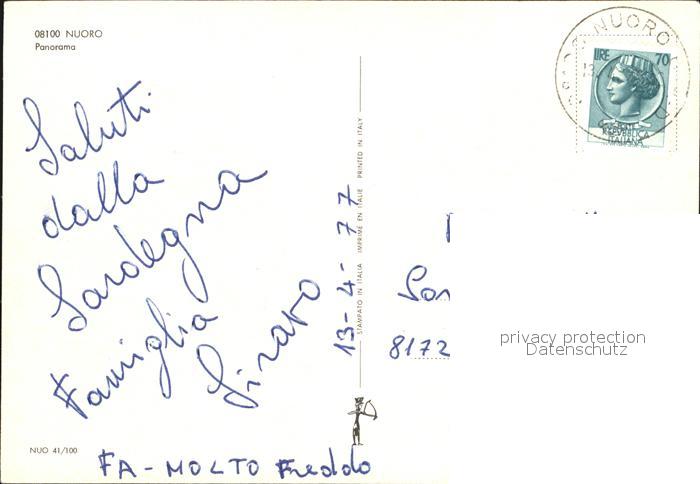 08100 NUORO
Panorama
Saluti
dalla
Sardegna
Famiglia
FA-MOLTO Freddo
13-4-77
NUO 41/100
STAMPATO IN ITALIA IMPRIMÉ EN ITALIE PRINTED IN ITALY
NUORO
LIRE 70
REPUBBLICA
ITALIANA
8172
privacy protection
Datenschutz